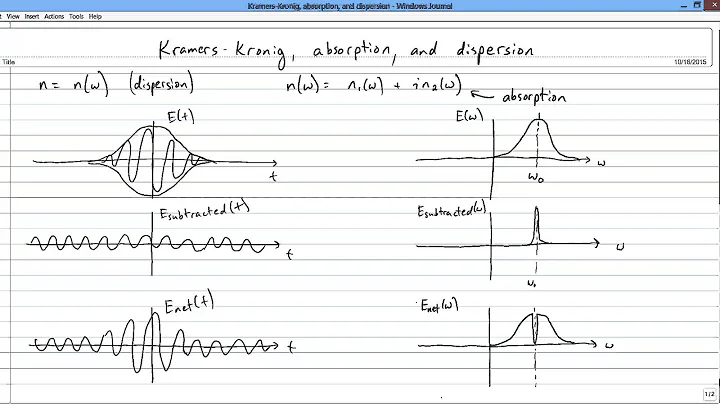 Kramers-Kronig, absorption, and dispersion - Windows Journal
View Insert Actions Tools Help
Kramers-Kronig, absorption, and dispersion
Title
10/16/2015
n = n(ω) (dispersion) n(ω) = n₁(ω) + i n₂(ω)
absorption
E(t) E(ω)
t ω
ω₀
Esubtracted(t) Esubtracted(ω)
t ω
ω₀
Enet(t) Enet(ω)
t ω
1/2